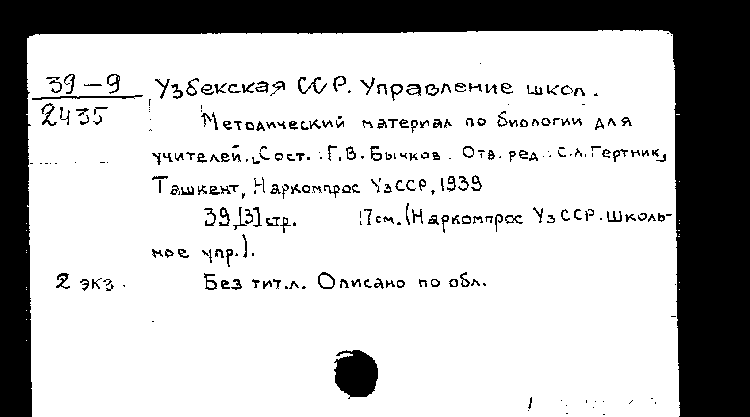 39-9 Узбекская ССР. Управление школ.
2435
Методический материал по биологии для
учителей. [Сост.: Г.В. Бычков. Отв. ред.: С.Л. Гертник]
Ташкент, Наркомпрос УзССР, 1939
39, [3] стр. 17 см. (Наркомпрос УзССР. Школь-
ное упр.).
2 экз. Без тит.л. Описано по обл.